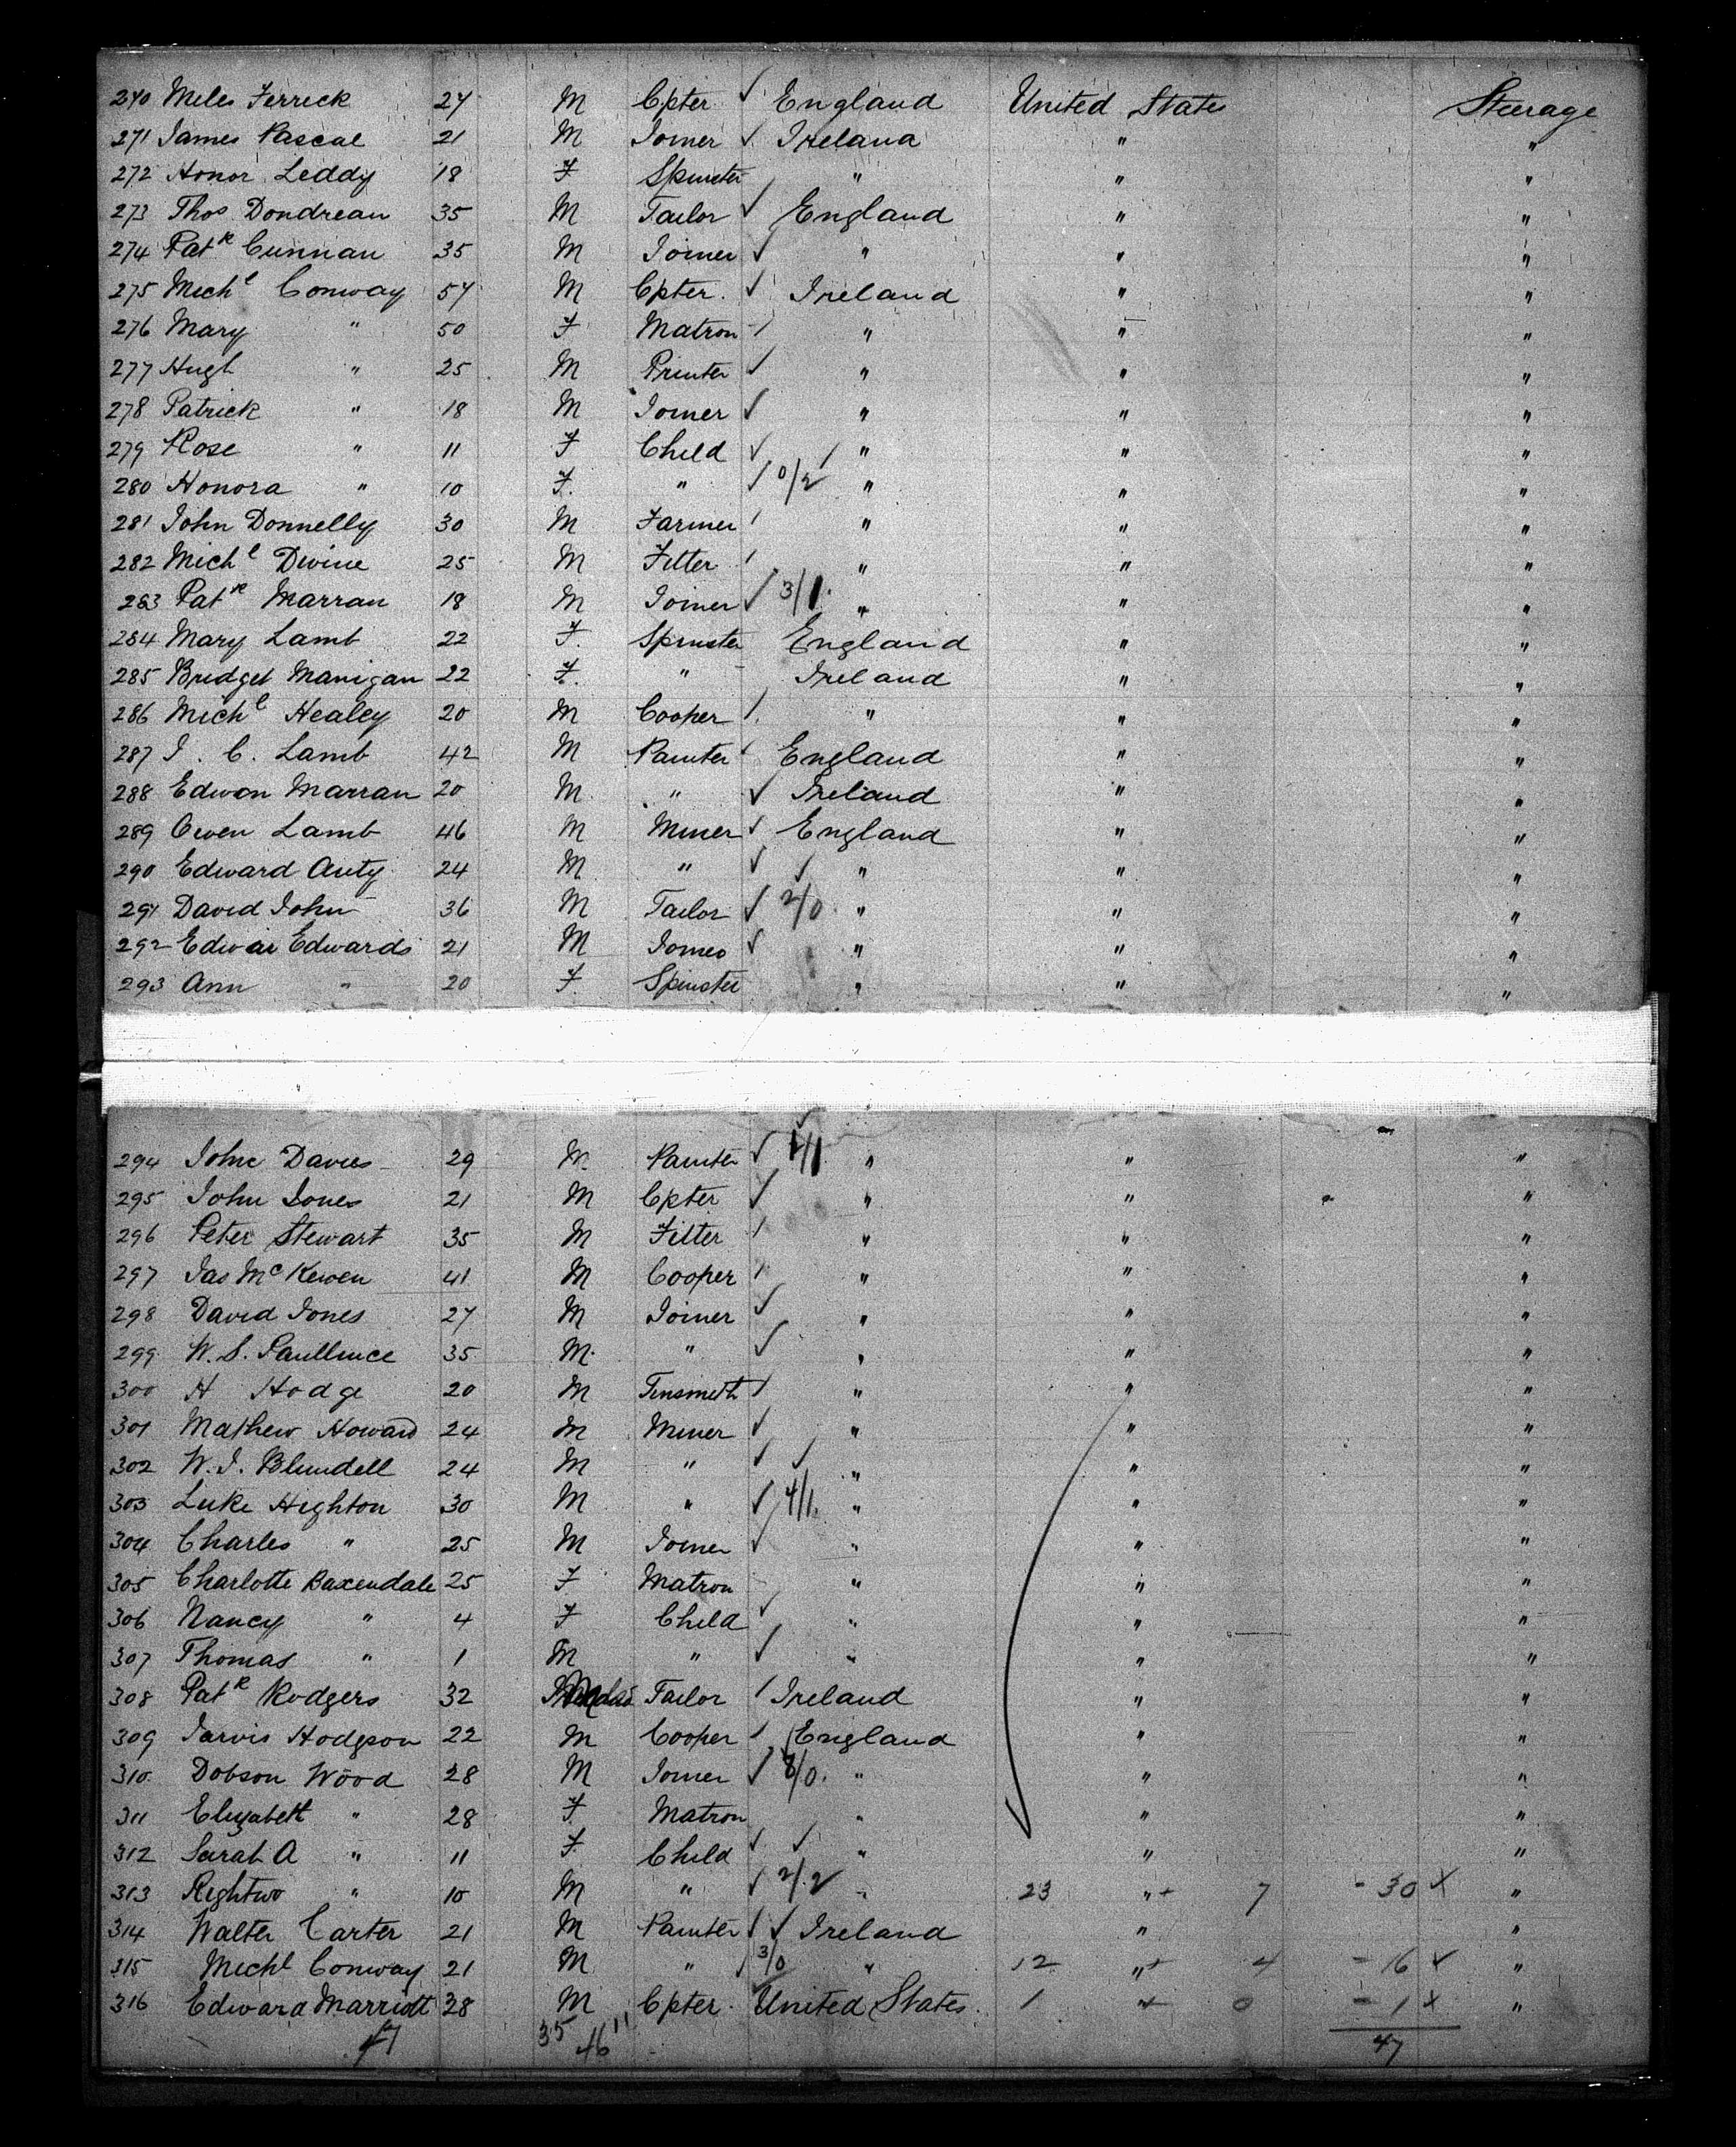 270 Miles Ferrick 27 M Cpter ✓ England United States Steerage
271 James Pascal 21 M Joiner ✓ Ireland " "
272 Honor Leddy 18 F Spinster " " "
273 Thos Dondrean 35 M Tailor ✓ England " "
274 Patk Cunnan 35 M Joiner ✓ " " "
275 Michl Conway 57 M Cpter. ✓ Ireland " "
276 Mary " 50 F Matron " " "
277 Hugh " 25 M Printer ✓ " " "
278 Patrick " 18 M Joiner ✓ " " "
279 Rose " 11 F Child ✓ " " "
280 Honora " 10 F. " ✓ 0/2 " " "
281 John Donnelly 30 M Farmer " " "
282 Michl Divine 25 M Fitter " " "
283 Patk Marran 18 M Joiner ✓ 3/1. " " "
284 Mary Lamb 22 F. Spinster England " "
285 Bridget Manigan 22 F. " Ireland " "
286 Michl Healey 20 M Cooper " " "
287 J. C. Lamb 42 M Painter England " "
288 Edwon Marran 20 M " ✓ Ireland " "
289 Owen Lamb 46 M Miner ✓ England " "
290 Edward Auty 24 M " ✓ ✓ " " "
291 David John 36 M Tailor ✓ 2/0. " " "
292 Edwar Edwards 21 M Joiner ✓ " " "
293 Ann " 20 F Spinster " " "
294 John Davies 29 M Painter ✓ " " "
295 John Jones 21 M Cpter ✓ " " "
296 Peter Stewart 35 M Fitter " " "
297 Jas McKewen 41 M Cooper " " "
298 David Jones 27 M Joiner ✓ " " "
299 W. S. Paullince 35 M. " ✓ " " "
300 H Hodge 20 M Tinsmith " " "
301 Mathew Howard 24 M Miner ✓ " " "
302 W. J. Blundell 24 M " ✓ ✓ " " "
303 Luke Highton 30 M " ✓ 4/1. " " "
304 Charles " 25 M Joiner ✓ " " "
305 Charlotte Baxendale 25 F Matron " " "
306 Nancy " 4 F Child ✓ " " "
307 Thomas " 1 M " ✓ " " "
308 Patk Rodgers 32 M Tailor Ireland " "
309 Jarvis Hodgson 22 M Cooper England " "
310 Dobson Wood 28 M Joiner ✓ 8/0. " " "
311 Elizabeth " 28 F Matron " " "
312 Sarah A " 11 F. Child ✓ ✓ " " "
313 Rightwo " 10 M " ✓ 2/2 " 23 "+ 7 - 30 x "
314 Walter Carter 21 M Painter ✓ Ireland " "
315 Michl Conway 21 M " ✓ 3/0 " 12 "+ 4 - 16 x "
316 Edward Marriott 28 M Cpter. United States. 1 + 0 - 1 x "
47 35 11 46 47